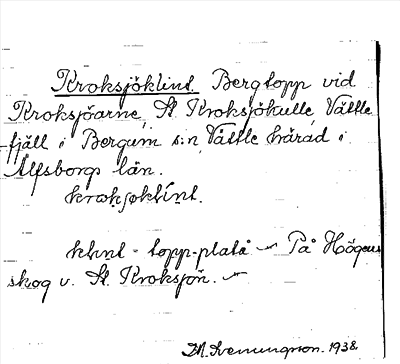 Kroksjöklint. Bergtopp vid
Kroksjöarne, St. Kroksjökulle, Vättle
fjäll i Bergum s:n, Vättle härad i
Älfsborgs län.
krɷksjøklint.
klint - topp-platå — På Högens
skog v. St. Kroksjön. —
M. Svenungsson. 1938.